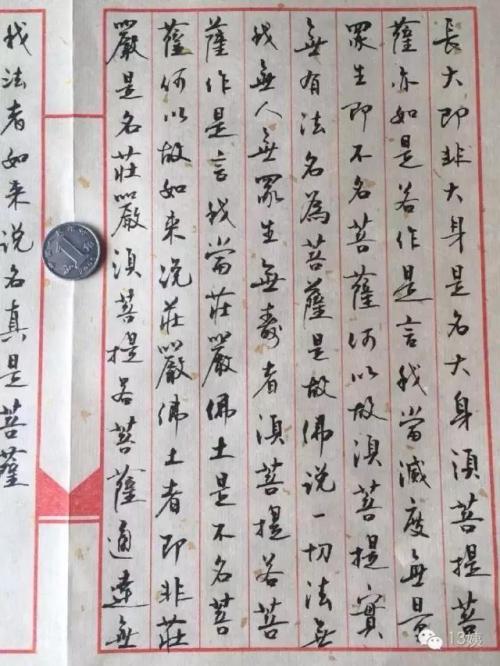 長大即非大身是名大身須菩提菩
薩亦如是若作是言我當滅度無量
眾生即不名菩薩何以故須菩提實
無有法名為菩薩是故佛説一切法無
我無人無眾生無壽者須菩提若菩
薩作是言我當莊嚴佛土是不名菩
薩何以故如来說莊嚴佛土者即非莊
嚴是名莊嚴須菩提若菩薩通達無
我法者如来说名真是菩薩
1
13姨